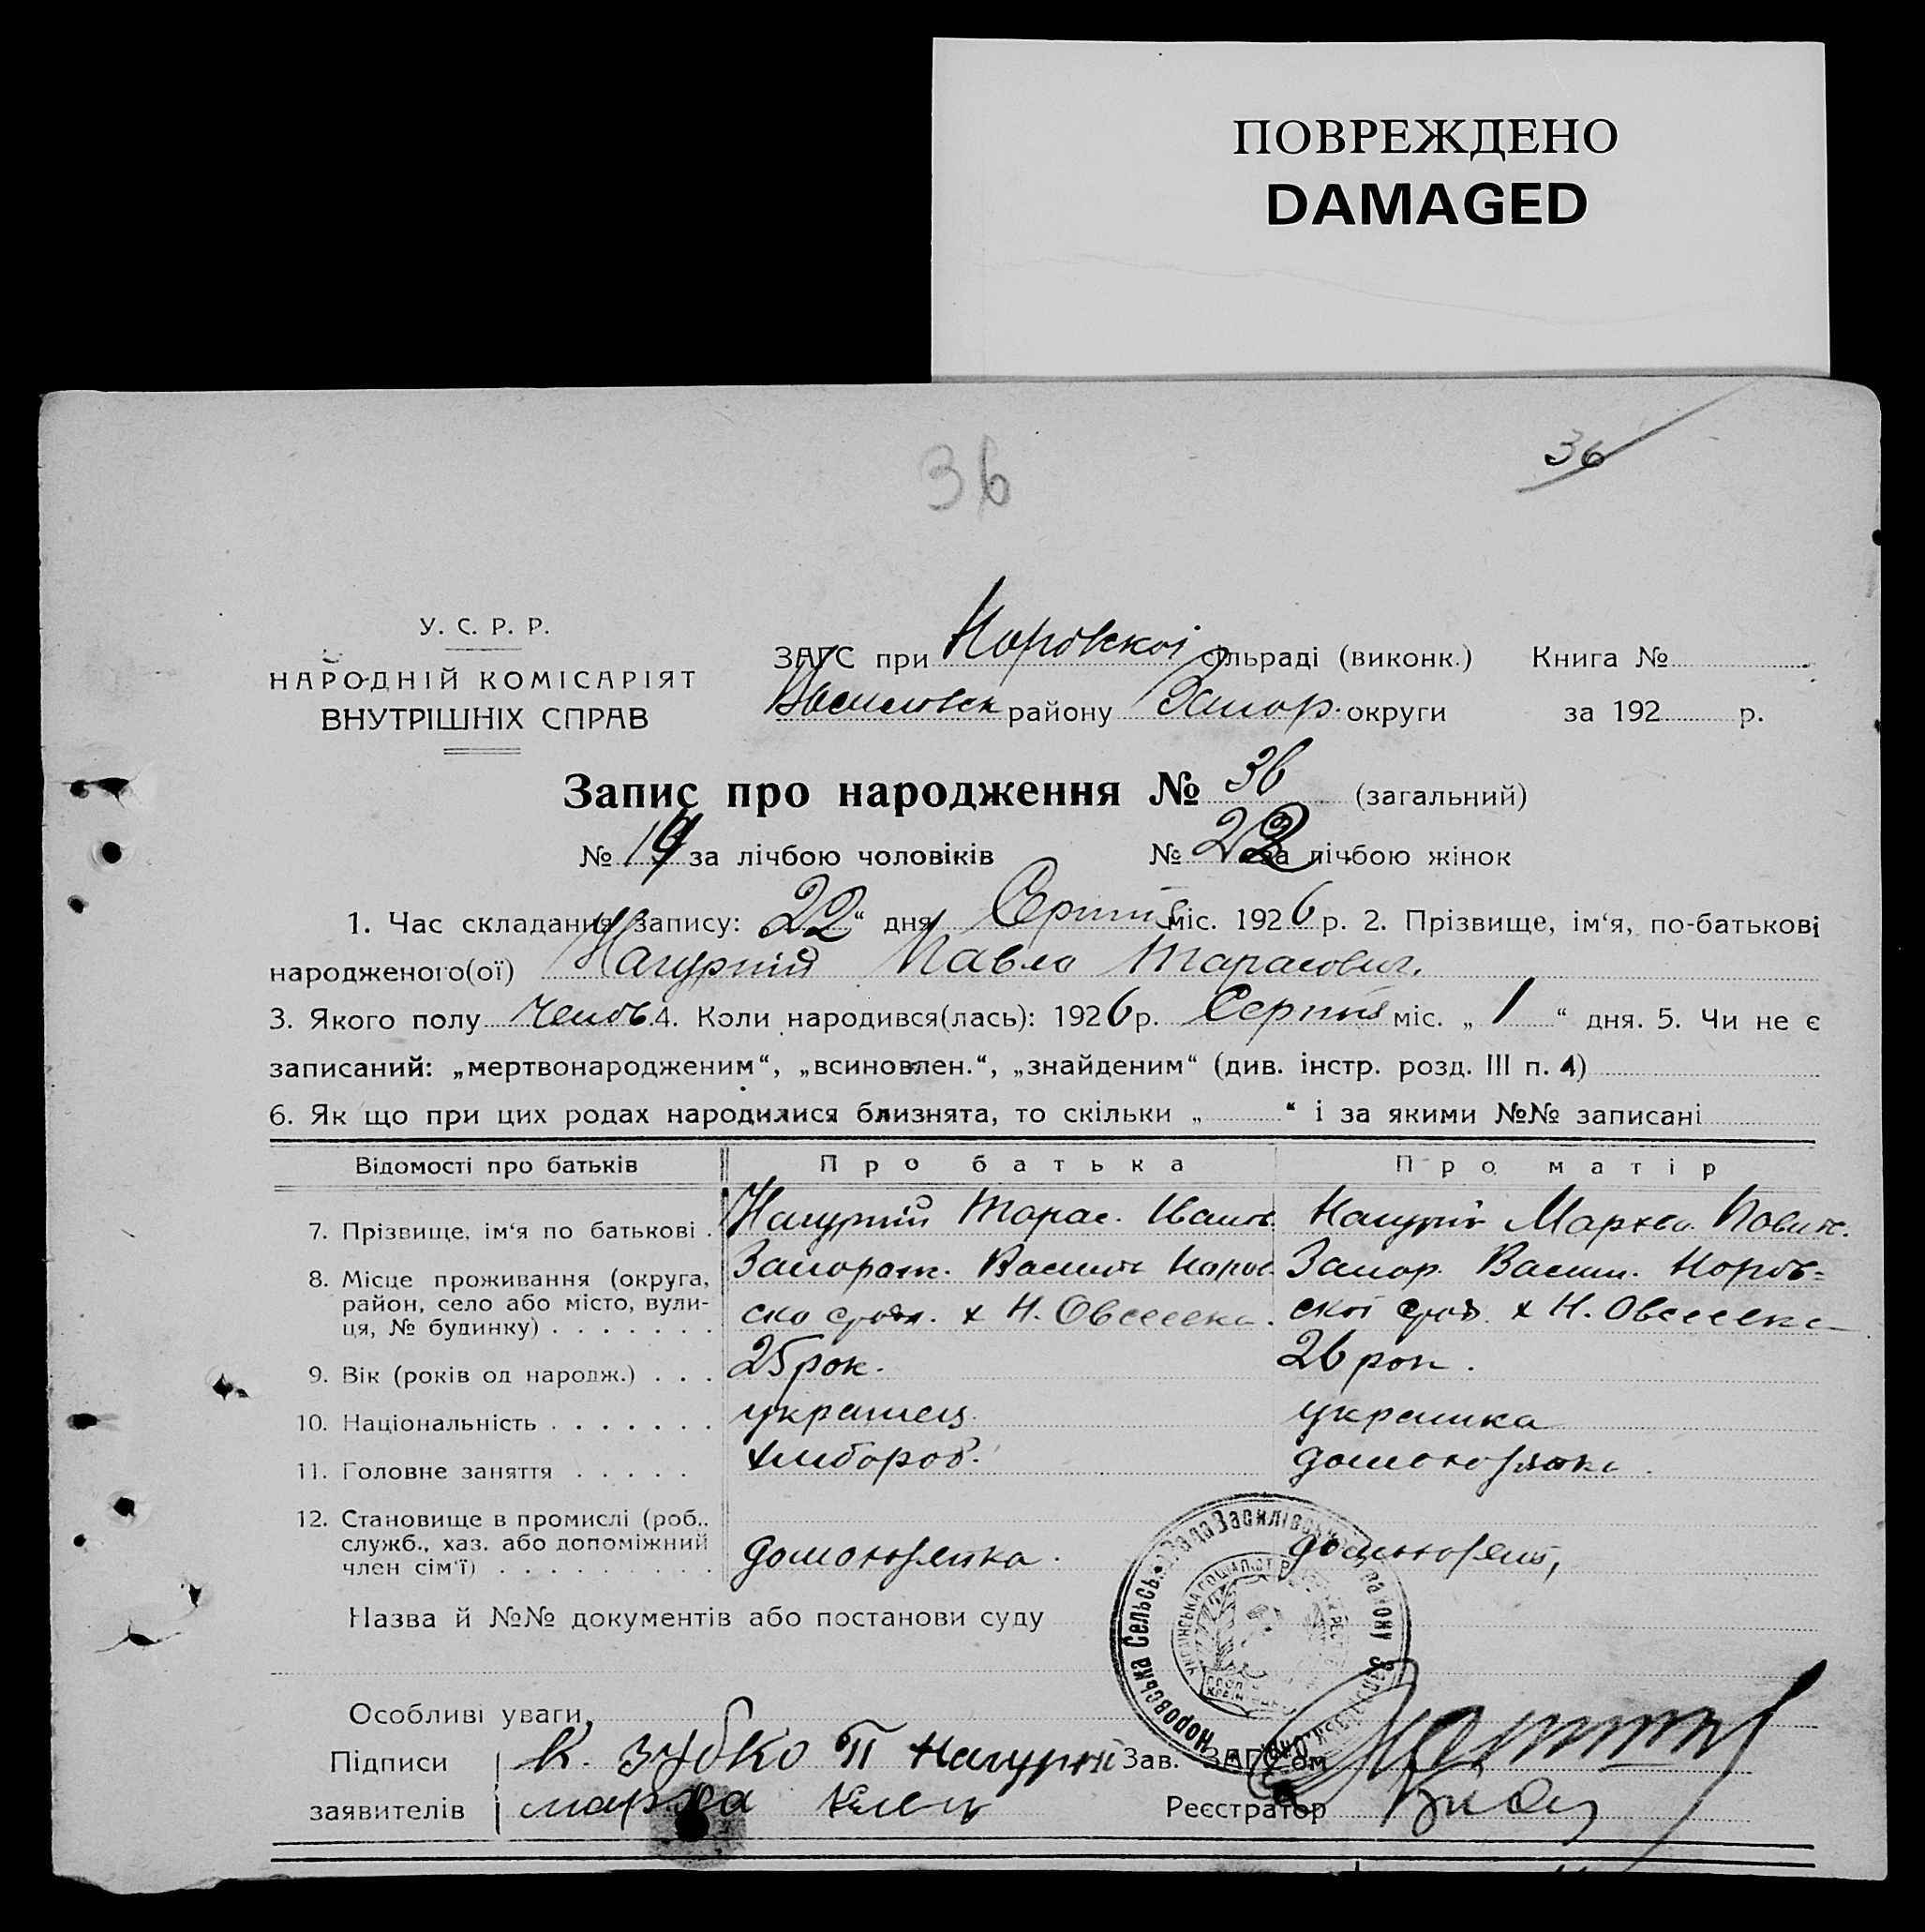 ПОВРЕЖДЕНО
DAMAGED
36
36
У. С. Р. Р.
НАРОДНІЙ КОМІСАРІЯТ
ВНУТРІШНІХ СПРАВ
ЗАГС при Норовскої сільраді (виконк.) Книга №
району Запор. округи за 192 р.
Запис про народження № 36 (загальний)
№ за лічбою чоловіків № 22 за лічбою жінок
1. Час складання запису: 22 “ дня Серпня міс. 1926 р. 2. Прізвище, ім‘я, по-батькові
народженого(ої) Нагурній Павло Тарасович.
3. Якого полу Чолов. 4. Коли народився(лась): 1926 р. Серпня міс. „ 1 “ дня. 5. Чи не є
записаний: „мертвонародженим“, „всиновлен.“, „знайденим“ (див. інстр. розд. III п. 4)
6. Як що при цих родах народилися близнята, то скільки „ “ і за якими №№ записані
Відомості про батьків Про батька Про матір
7. Прізвище, ім‘я по батькові . Нагурній Тарас. Іванов.
8. Місце проживання (округа, Запор. Васил. Норов-
район, село або місто, вули-
ця, № будинку) . . . . . . . х Н. х Н.
9. Вік (років од народж.) . . . 25 рок. 26 рок.
10. Національність . . . . . . . українець українка
11. Головне заняття . . . . . хлібороб.
12. Становище в промислі (роб..
служб., хаз. або допоміжний
член сім‘ї) . . . . . . . . .
Норовська Сельська Рада Василівськ району
Назва й №№ документів або постанови суду
Особливі уваги
Підписи К. Зубко П Нагурній Зав. ЗАГС‘ом
заявителів марфа Реєстратор